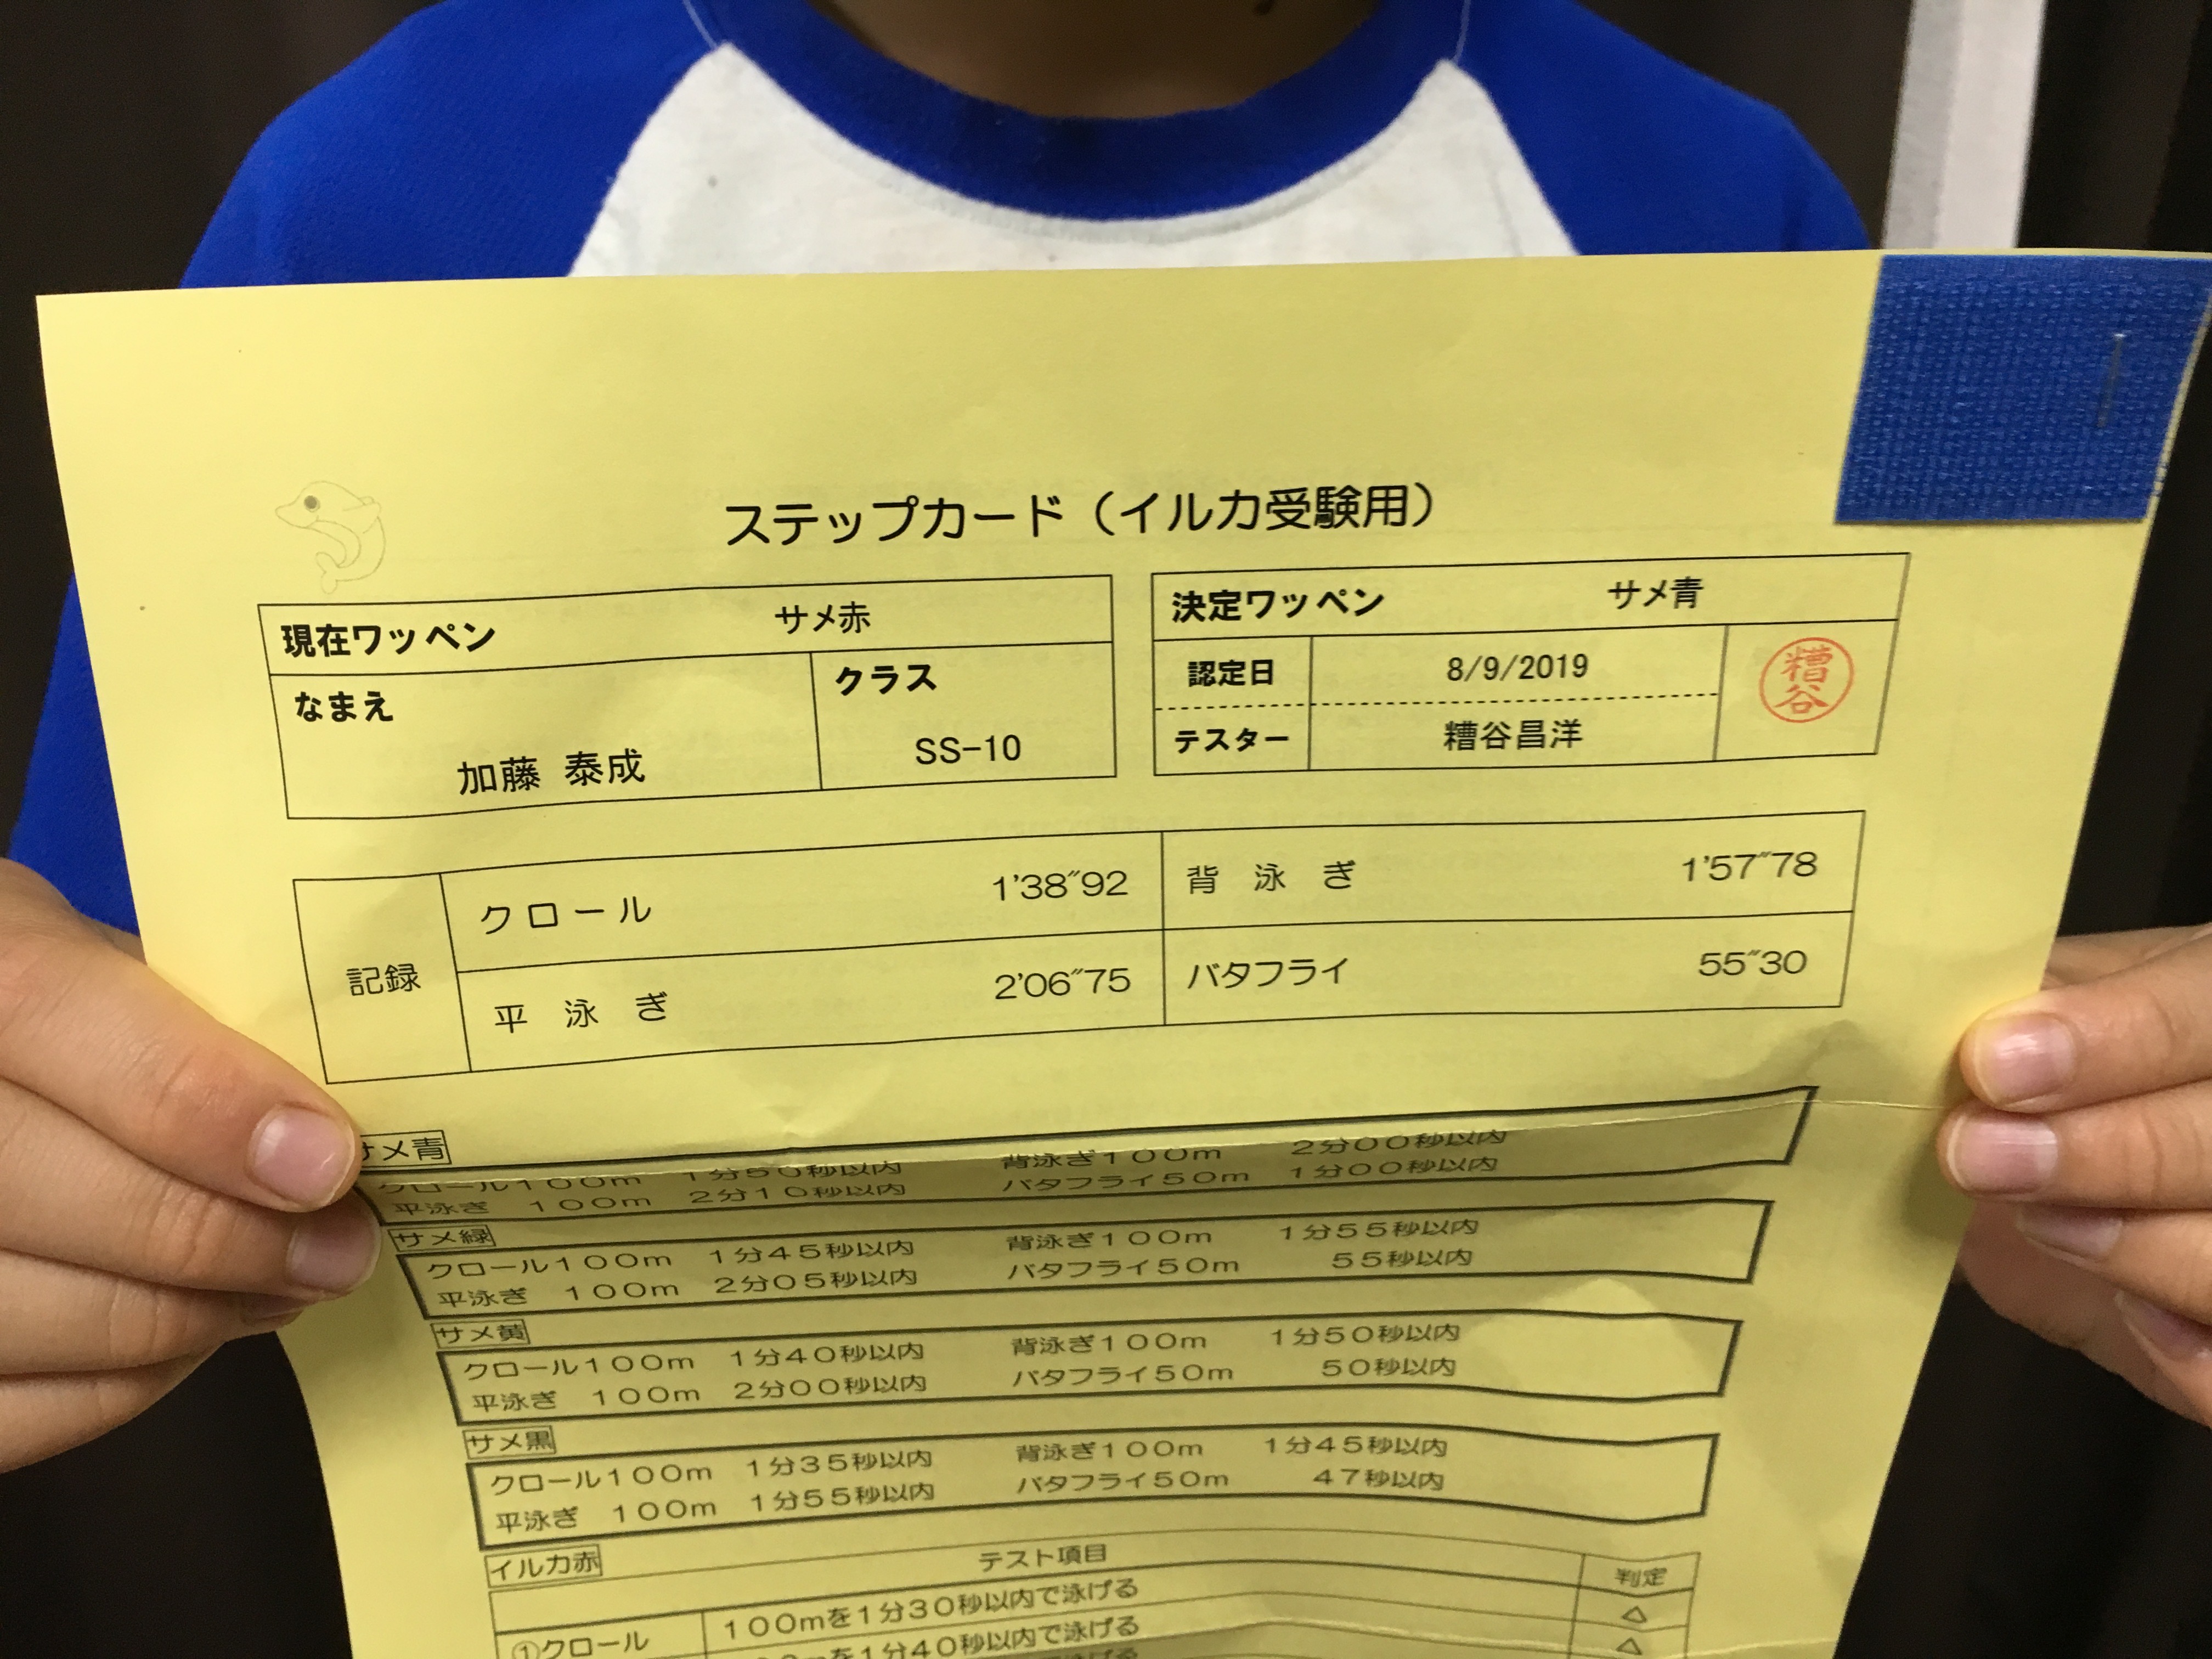 ステップカード（イルカ受験用）
現在ワッペン サメ赤
なまえ
加藤 泰成
クラス
SS-10
決定ワッペン サメ青
認定日 8/9/2019
テスター 糟谷昌洋
糟谷
記録
クロール 1'38″92 背泳ぎ 1'57″78
平泳ぎ 2'06″75 バタフライ 55″30
サメ青
クロール100m 1分50秒以内 背泳ぎ100m 2分00秒以内
平泳ぎ 100m 2分10秒以内 バタフライ50m 1分00秒以内
サメ緑
クロール100m 1分45秒以内 背泳ぎ100m 1分55秒以内
平泳ぎ 100m 2分05秒以内 バタフライ50m 55秒以内
サメ黄
クロール100m 1分40秒以内 背泳ぎ100m 1分50秒以内
平泳ぎ 100m 2分00秒以内 バタフライ50m 50秒以内
サメ黒
クロール100m 1分35秒以内 背泳ぎ100m 1分45秒以内
平泳ぎ 100m 1分55秒以内 バタフライ50m 47秒以内
イルカ赤
テスト項目 判定
①クロール 100mを1分30秒以内で泳げる △
を1分40秒以内で泳げる △